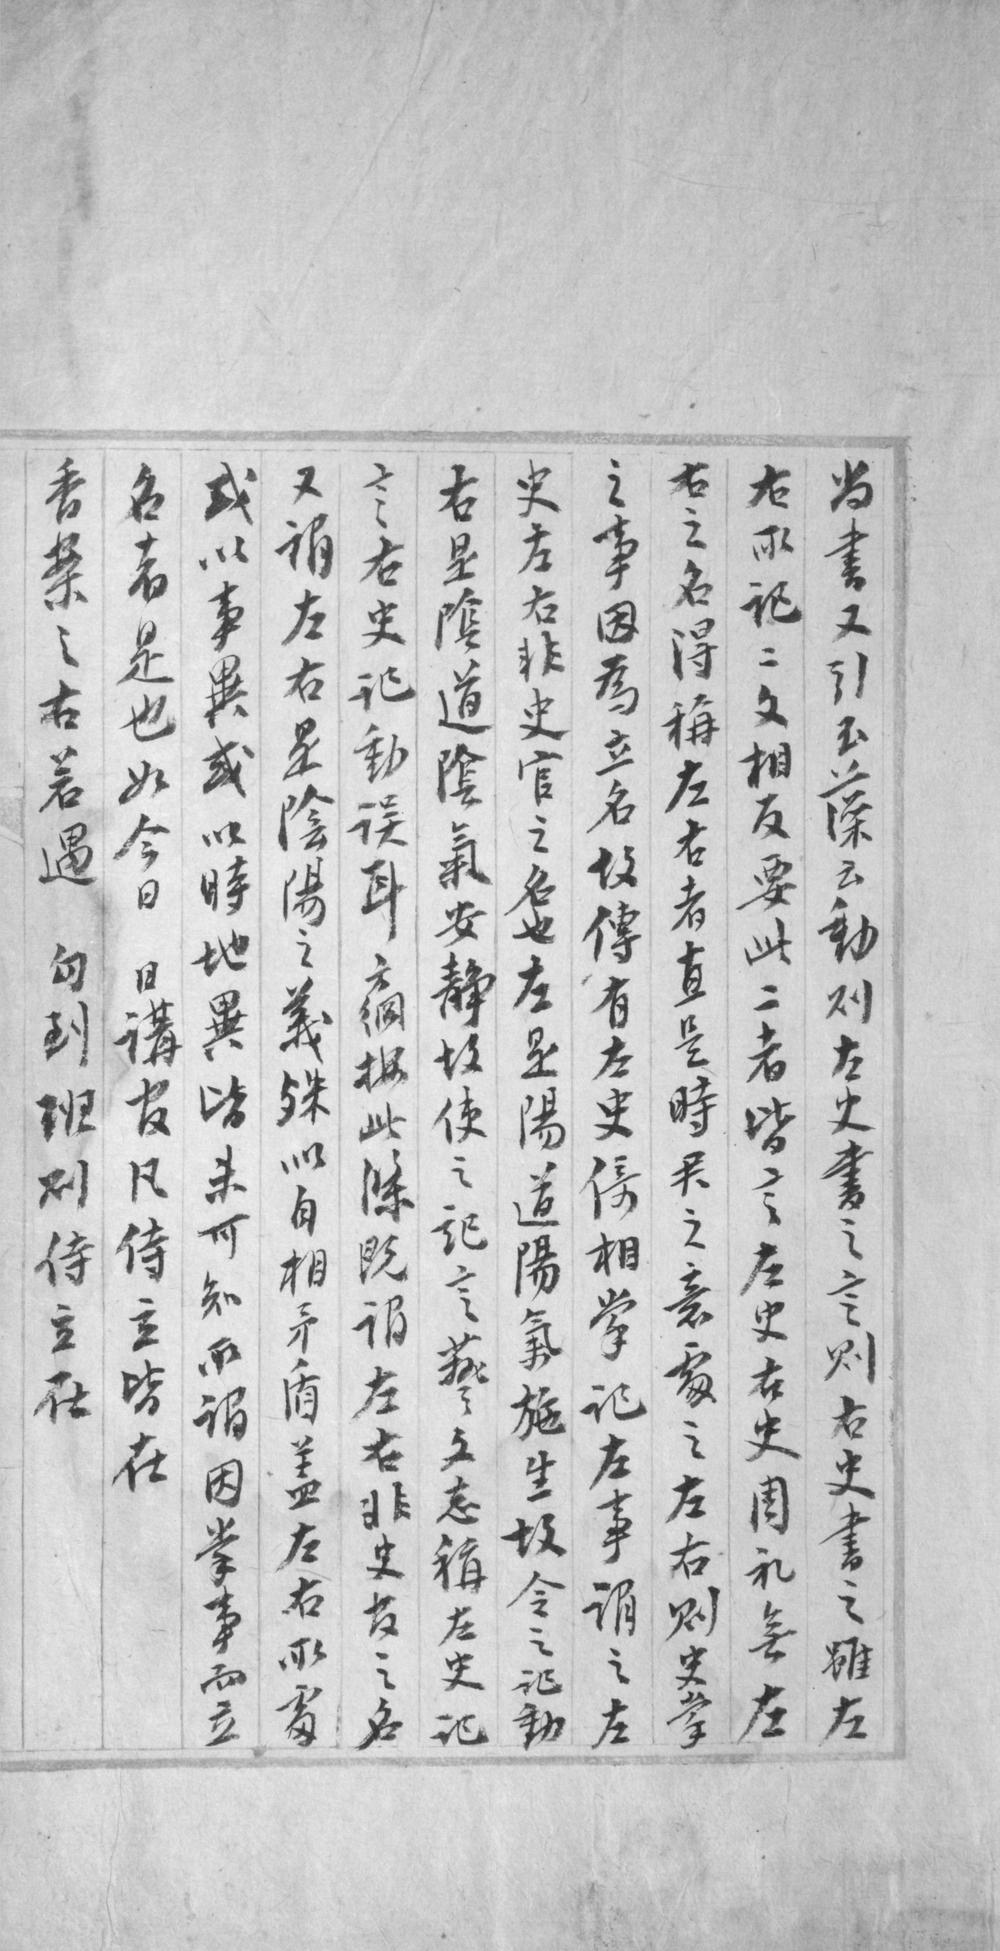 尚書又引玉藻云動則左史書之言則右史書之雖左
右所記二文相反要此二者皆言左史右史周礼無左
右之名得稱左右者直是時君之意處之左右則史掌
之事因爲立名故傳有左史倚相掌記左事謂之左
史左右非史官之名也左是陽道陽氣施生故令之記動
右是陰道陰氣安静故使之記言藝文志稱左史記
言右史記動誤耳 綱按此條既謂左右非史官之名
又謂左右是陰陽之義殊以自相矛盾盖左右所處
或以事異或以時地異皆未可知所謂因掌事而立
名者是也如今日 日講官凡侍立皆在
香案之右若遇 勾到班則侍立在